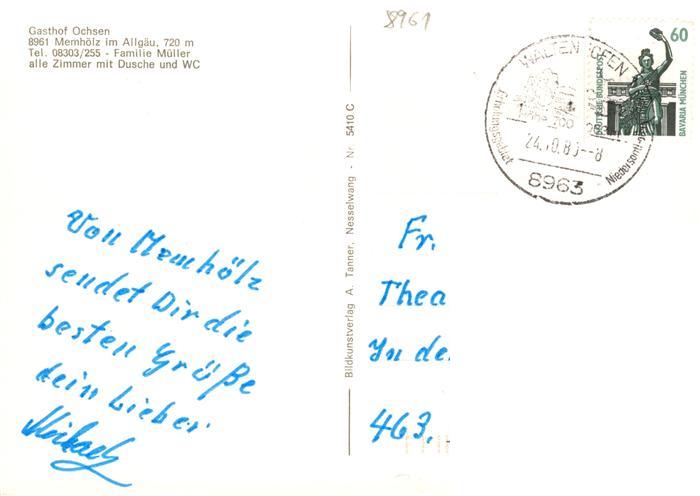 Gasthof Ochsen
8961 Memhölz im Allgäu, 720 m
Tel. 08303/255 - Familie Müller
alle Zimmer mit Dusche und WC
8961
60
DEUTSCHE BUNDESPOST
BAVARIA MÜNCHEN
WALTENHOFEN
24.10.89--8
8963
Bildkunstverlag A. Tanner, Nesselwang - Nr. 5410 C
Von Memhölz
sendet Dir die
besten Grüße
dein Lieber
Fr.
Thea
In de
463.